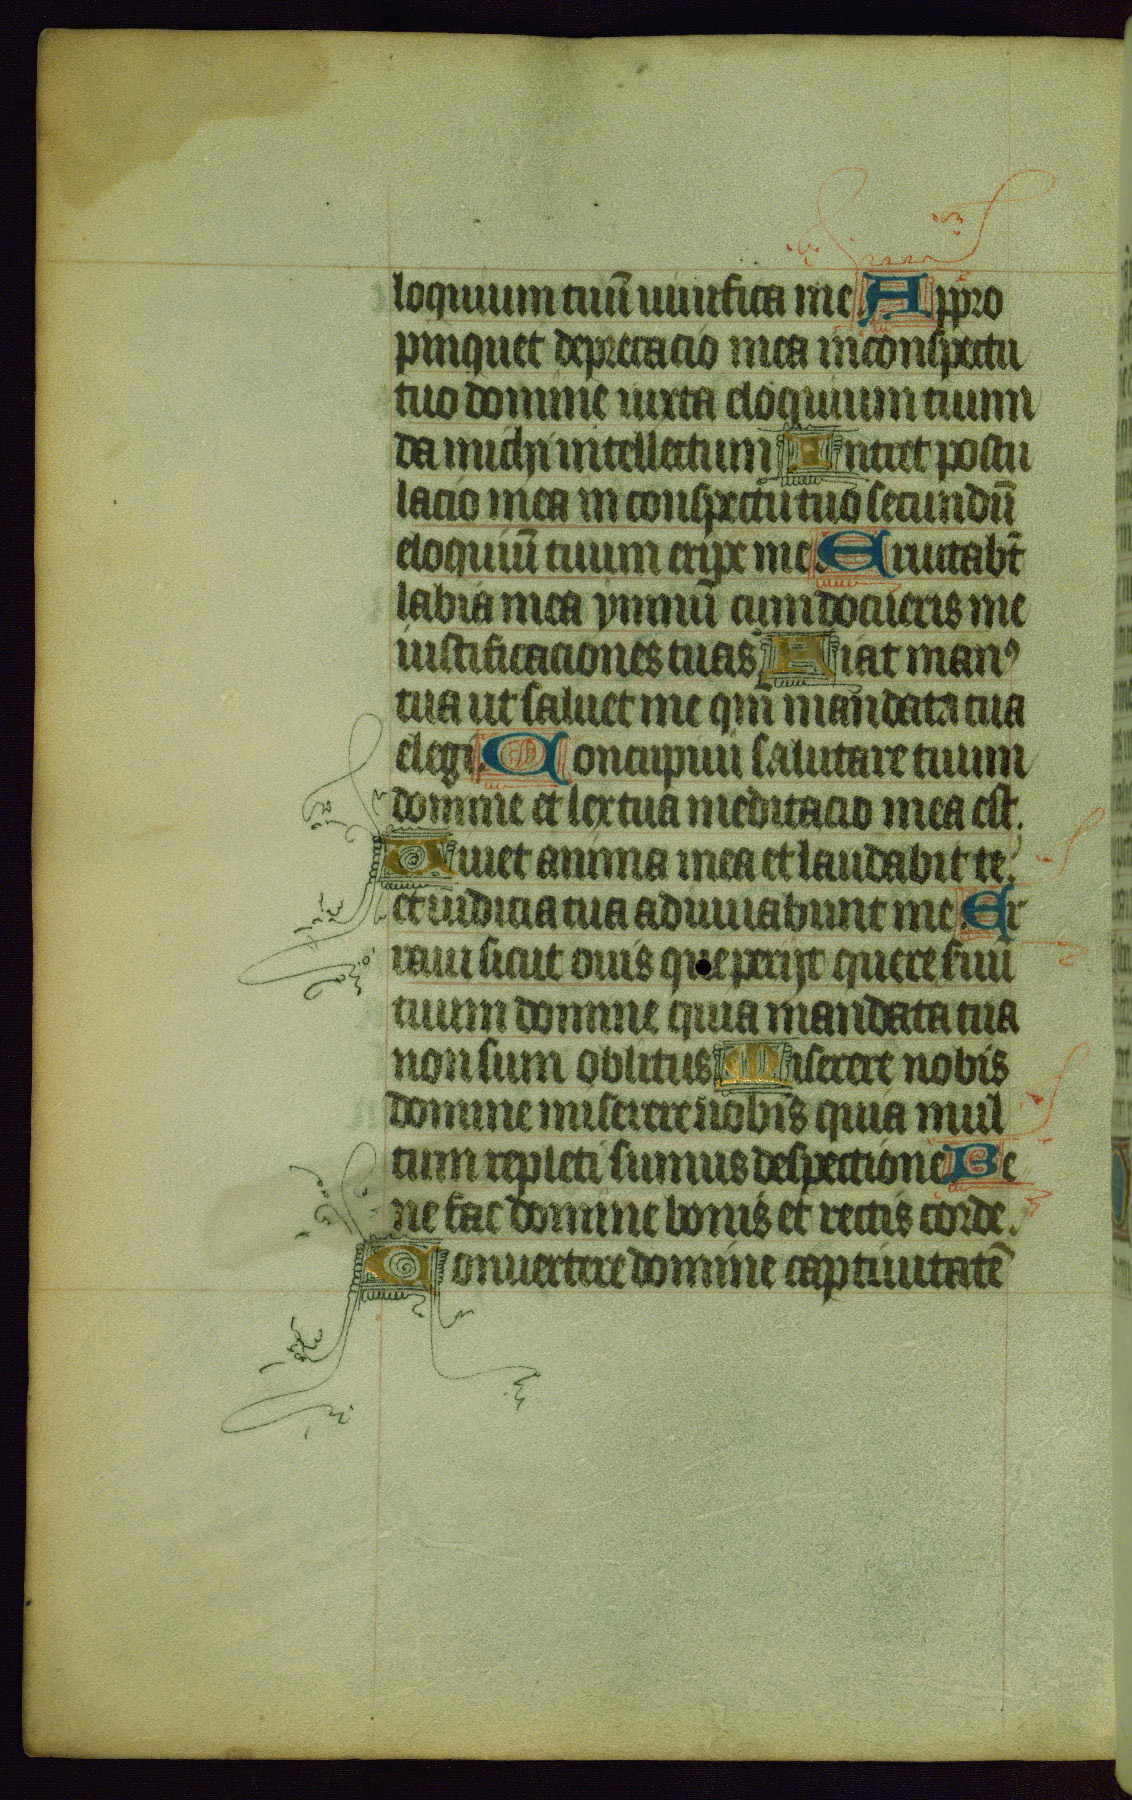 loquium tuū uiuifica me Appro
pinquet deprecacio mea in conspectu
tuo domine iuxta eloquium tuum
da michi intellectum Intret postu
lacio mea in conspectu tuo secundū
eloquiū tuum eripe me. Eructabūt
labia mea ymnū cum docueris me
iustificaciones tuas Fiat manꝰ
tua ut saluet me qm̄ mandata tua
elegi. Concupiui salutare tuum
domine et lex tua meditacio mea est.
Uiuet anima mea et laudabit te.
et iudicia tua adiuuabunt me. Er
raui sicut ouis que perijt quere seruū
tuum domine quia mandata tua
non sum oblitus Miserere nobis
domine miserere nobis quia mul
tum repleti sumus despectione Be
ne fac domine bonis et rectis corde.
Conuertere domine captiuitatē